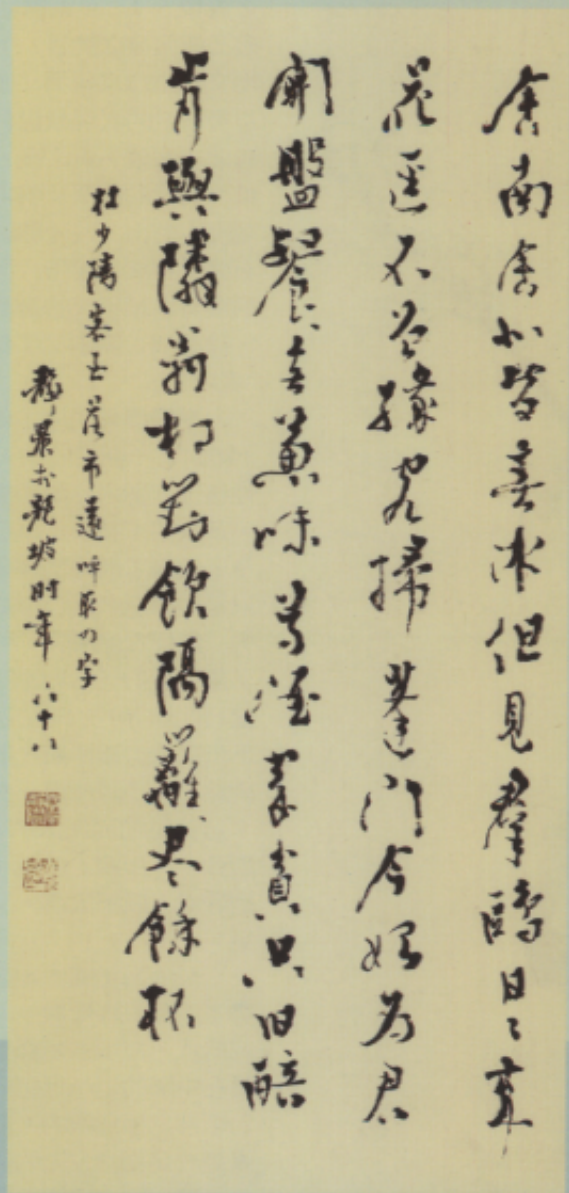 舍南舍北皆春水但見羣鷗日〻來
花逕不曾緣客掃蓬門今始為君
開盤飧无兼味尊酒家貧只旧醅
肯與隣翁相對飲隔籬尽餘杯
杜少陵客至落市遠呼取四字
靜農於龍坡時年八十八